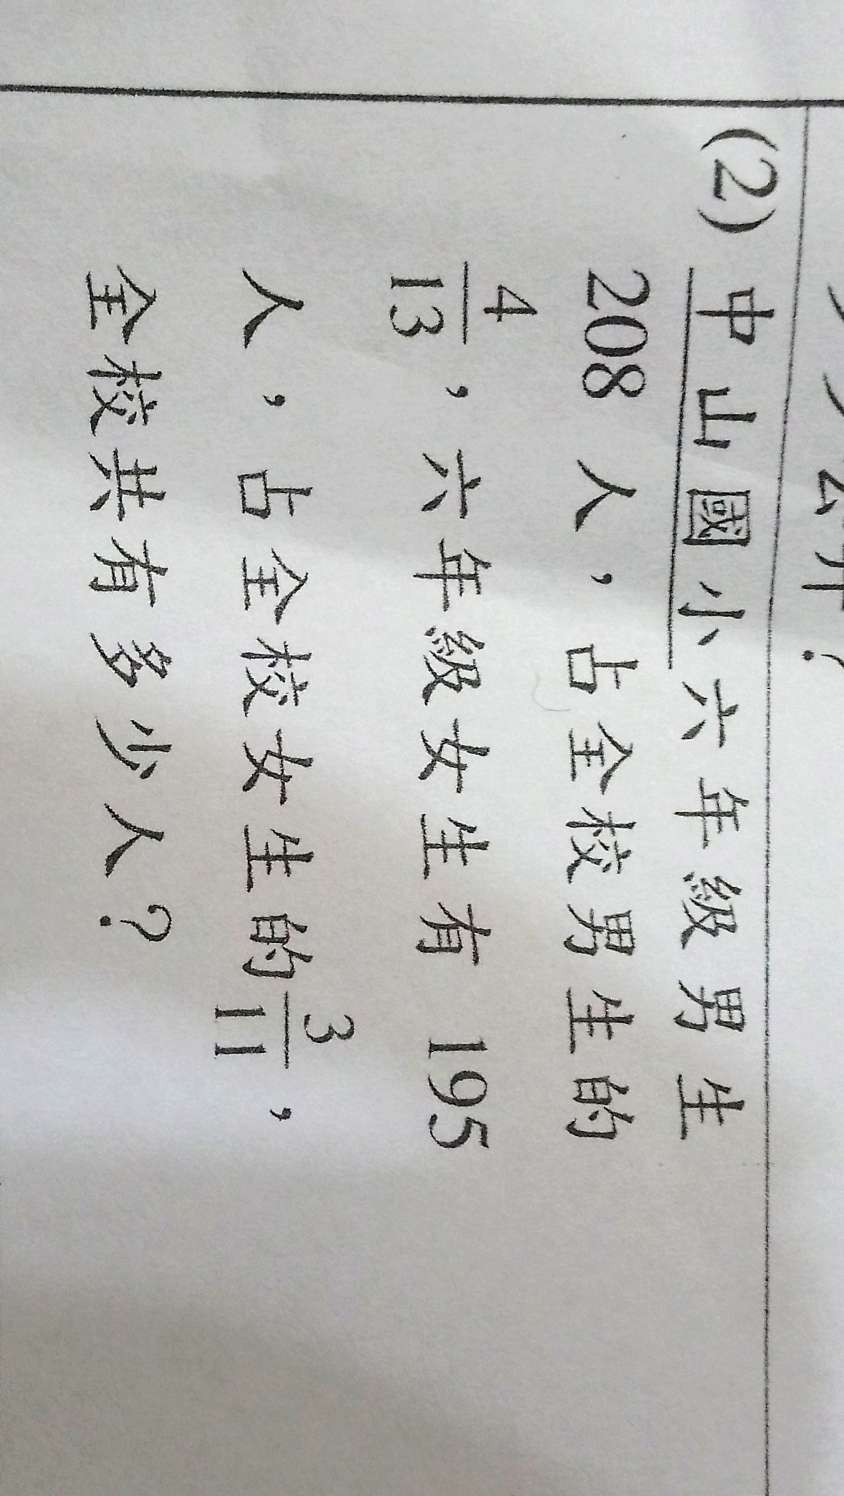 (2) 中山國小六年級男生
208 人，占全校男生的
4/13，六年級女生有 195
人，占全校女生的3/11，
全校共有多少人？